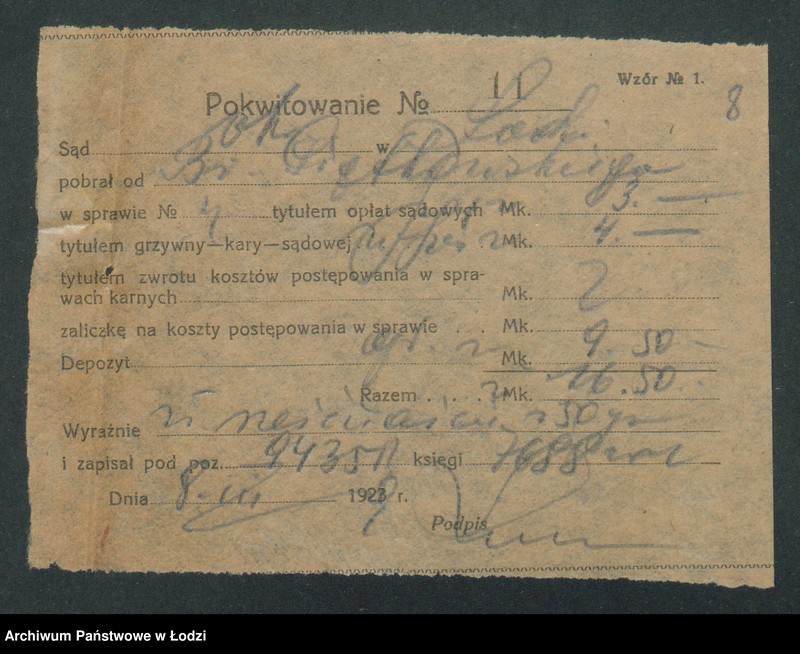 Wzór № 1.
8
Pokwitowanie № 11
Sąd okr. w Łodzi
pobrał od Br. Piątkowskiego
w sprawie № tytułem opłat sądowych Mk. 3. —
tytułem grzywny—kary—sądowej Mk. 4. —
tytułem zwrotu kosztów postępowania w spra-
wach karnych Mk.
zaliczkę na koszty postępowania w sprawie . . . Mk. 9.50
Depozyt Mk.
Razem . . . Mk. 16.50
Wyraźnie zł 50 gr
i zapisał pod poz. 94351 księgi
Dnia 8. III 1923 r. 9
Podpis
Archiwum Państwowe w Łodzi